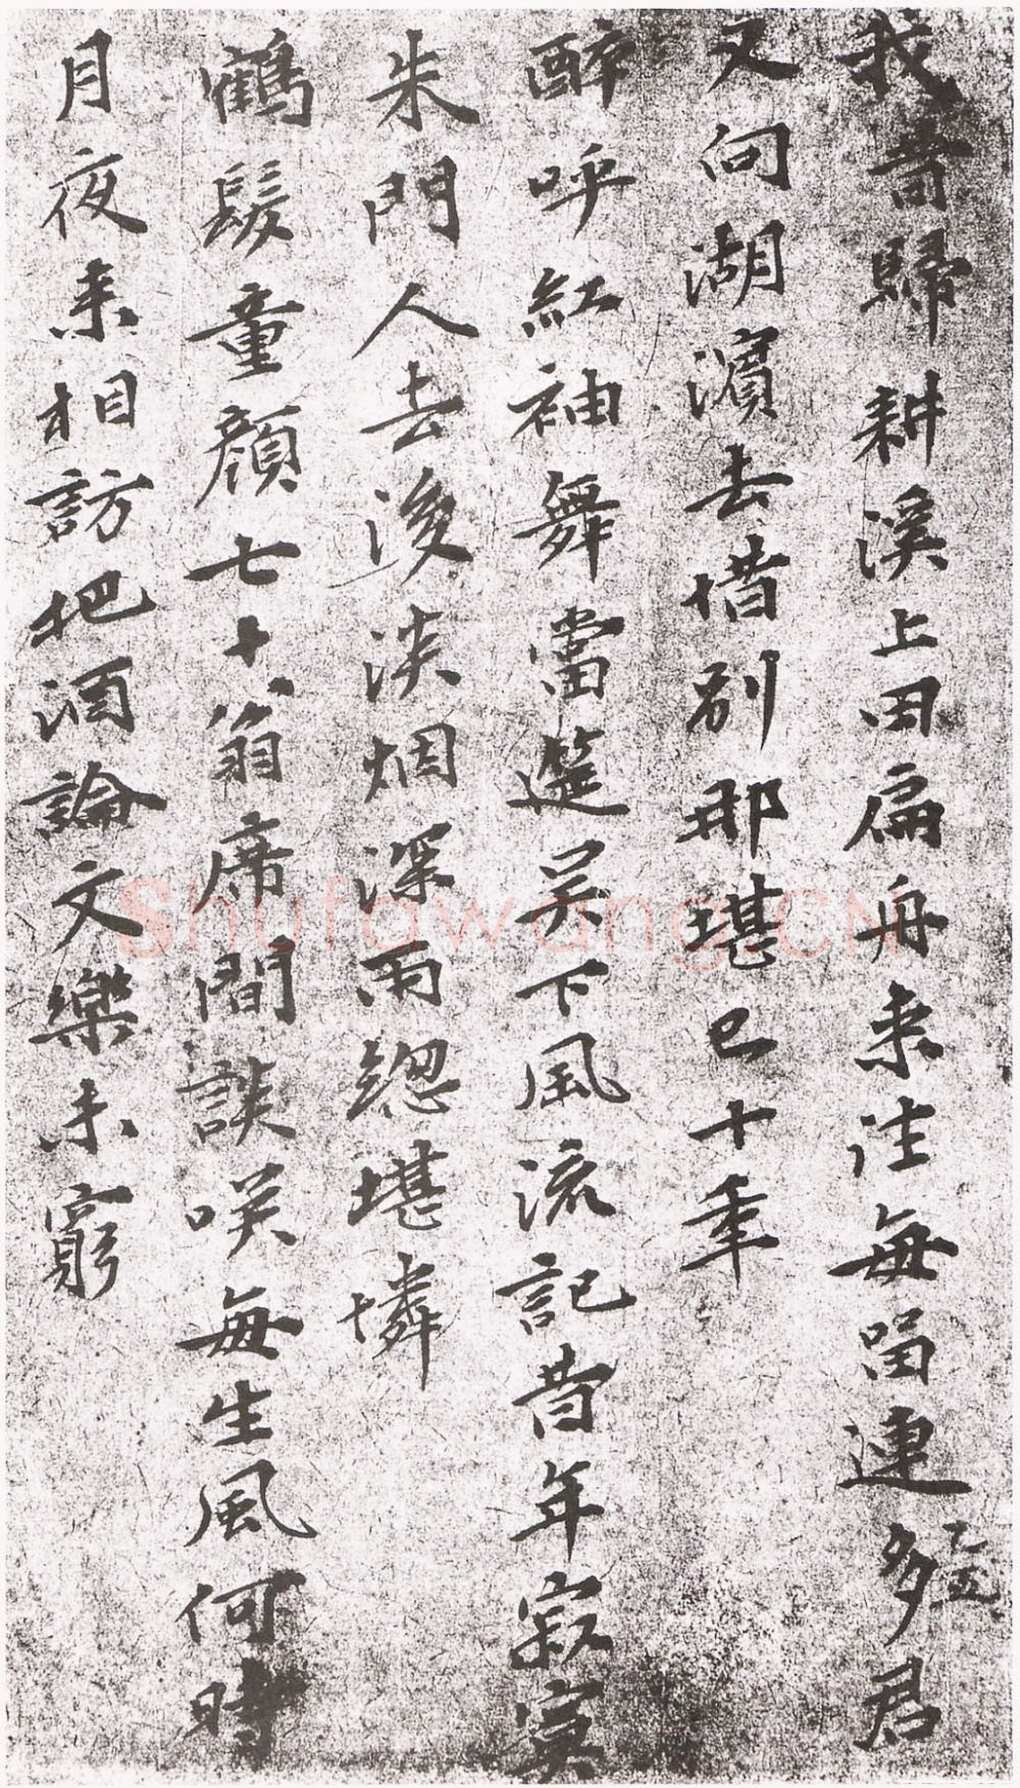 我昔歸耕溪上田扁舟来往每留連多君
又向湖濱去惜别那堪已十年
醉呼紅袖舞當筵吴下風流記昔年寂寞
朱門人去後淡烟深雨緫堪憐
鶴髮童顔七十翁席間談咲每生風何時
月夜来相訪把酒論文樂未窮
shufawang.CN